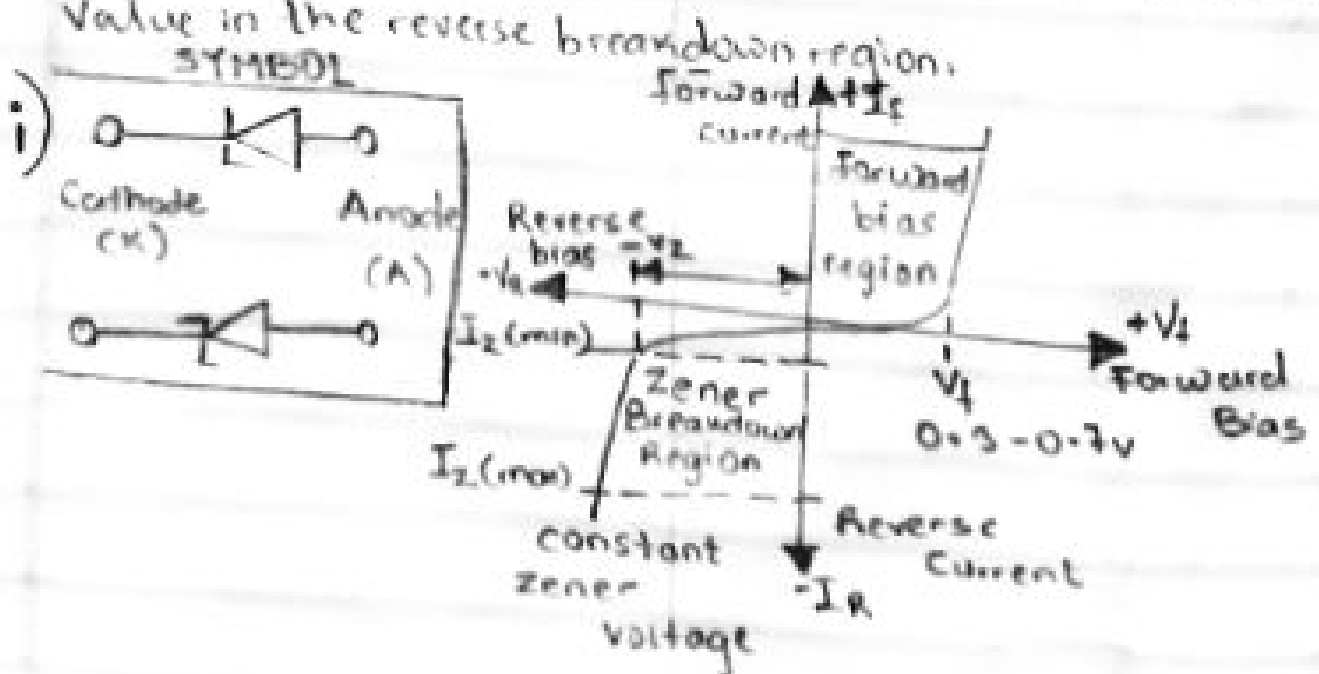 Value in the reverse breakdown region.
SYMBOL
i)
Cathode
(K)
Anode
(A)
Forward
current
+If
Forward
bias
region
Reverse
bias
-Vz
-VR
+Vf
Forward
Bias
Vf
0.3 - 0.7v
Iz (min)
Zener
Breakdown
Region
Iz (max)
constant
zener
voltage
Reverse
Current
-IR